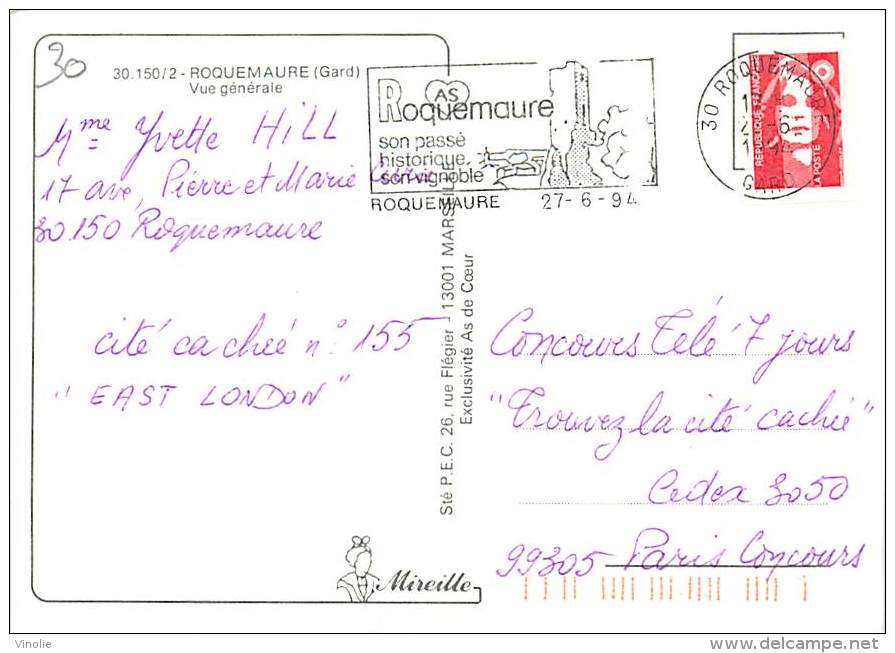 30
30.150/2 - ROQUEMAURE (Gard)
Vue générale
Mme Yvette HILL
17 ave, Pierre et Marie Curie
30150 Roquemaure
cité cachée n° 155
"EAST LONDON"
AS
Roquemaure
son passé
historique,
son vignoble
ROQUEMAURE 27-6-94
30 ROQUEMAURE
GARD
REPUBLIQUE FRANÇAISE
LA POSTE
Sté P.E.C. 26, rue Flégier - 13001 MARSEILLE
Exclusivité As de Cœur
Concours Télé 7 jours
"Trouvez la cité cachée"
Cedex 3050
99305 Paris Concours
Mireille
Vinolie
www.delcampe.net